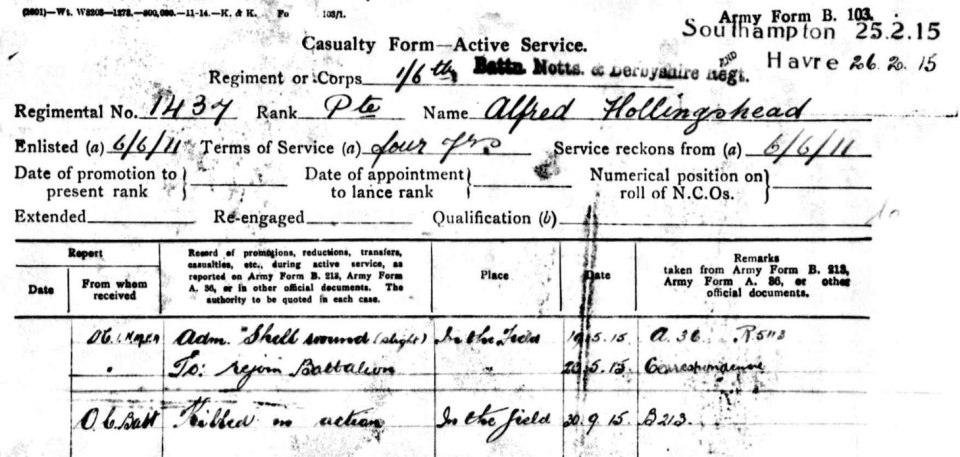 (2601)—Wt. W8203—1273.—800,000.—11-14.—K. & K. Fo 103/1.
Army Form B. 103.
Southampton 25.2.15
Casualty Form—Active Service.
Havre 26.2.15
Regiment or Corps 1/6th Battn. Notts. & Derbyshire Regt.
Regimental No. 1437 Rank Pte Name Alfred Hollingshead
Enlisted (a) 6/6/11 Terms of Service (a) four yrs Service reckons from (a) 6/6/11
Date of promotion to present rank Date of appointment to lance rank Numerical position on roll of N.C.Os.
Extended Re-engaged Qualification (b)
Report
Date From whom received
Record of promotions, reductions, transfers, casualties, etc., during active service, as reported on Army Form B. 213, Army Form A. 36, or in other official documents. The authority to be quoted in each case.
Place
Date
Remarks taken from Army Form B. 213, Army Form A. 36, or other official documents.
Adm. "Shell wound (slight) In the Field 5.15 A. 36
" To: rejoin Battalion " 5.15 Correspondence
O.C. Batt Killed in action In the field 30.9.15 B213.